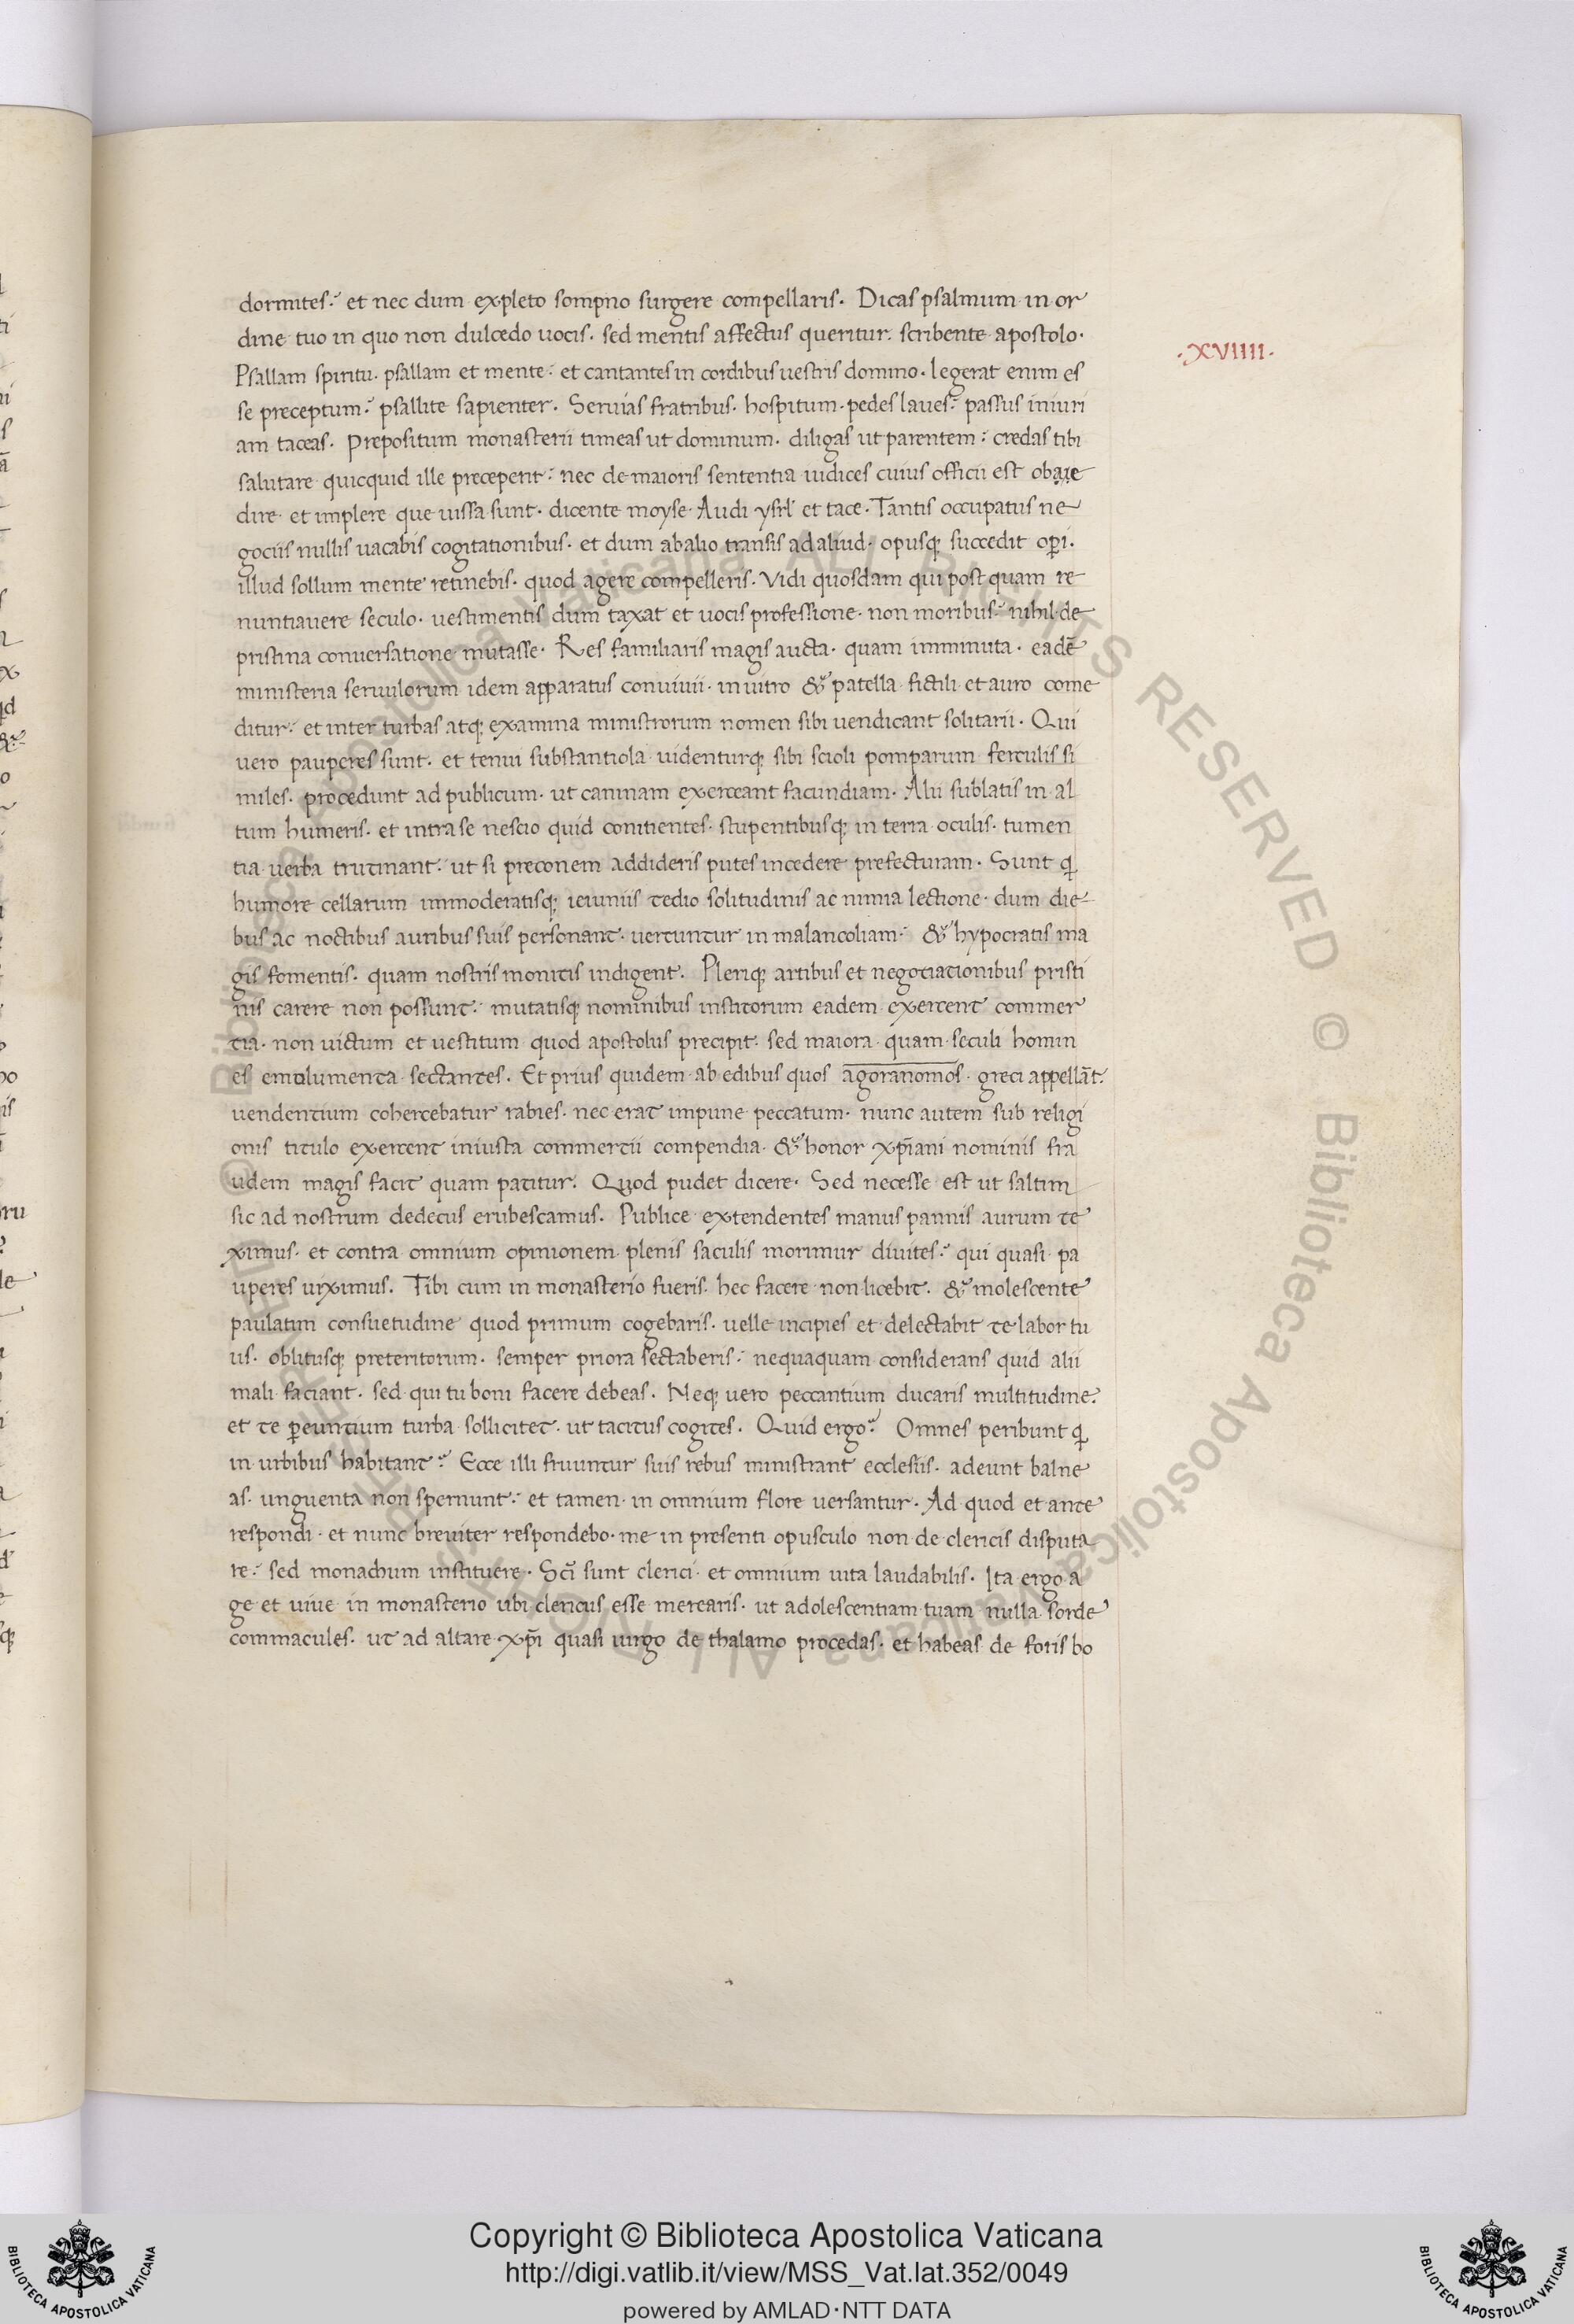 dormites. et nec dum expleto sompno surgere compellaris. Dicas psalmum in or
dine tuo in quo non dulcedo uocis. sed mentis affectus queritur. scribente apostolo.
·XVIIII·
Psallam spiritu. psallam et mente: et cantantes in cordibus uestris domino. legerat enim es
se preceptum: psallite sapienter. Seruias fratribus. hospitum pedes laues: passus iniuri
am taceas. Prepositum monasterii timeas ut dominum. diligas ut parentem: credas tibi
salutare quicquid ille preceperit: nec de maioris sententia iudices cuius officii est obaie
dire et implere que iussa sunt. dicente moyse. Audi ysrł et tace. Tantis occupatus ne
gociis nullis uacabis cogitationibus. et dum ab alio transis ad aliud. opusq; succedit op̄i.
illud sollum mente retinebis. quod agere compelleris. Vidi quosdam qui post quam re
nuntiauere seculo. uestimentis dum taxat et uocis professione. non moribus: nihil de
pristina conuersatione mutasse. Res familiaris magis aucta. quam imminuta. eadē
ministeria seruulorum idem apparatus conuiuii. in uitro & patella fictili et auro come
ditur: et inter turbas atq; examina ministrorum nomen sibi uendicant solitarii. Qui
uero pauperes sunt. et tenui substantiola uidenturq; sibi scioli pomparum ferculis si
miles. procedunt ad publicum. ut caninam exerceant facundiam. Alii sublatis in al
tum humeris. et intra se nescio quid conitientes. stupentibusq; in terra oculis. tumen
tia uerba trutinant: ut si preconem addideris putes incedere prefecturam. Sunt q̄
humore cellarum immoderatisq; ieiuniis tedio solitudinis ac nimia lectione. dum die-
bus ac noctibus auribus suis personant. uertuntur in malancoliam: & hypocratis ma
gis fomentis. quam nostris monitis indigent. Pleriq; artibus et negotiationibus pristi
nis carere non possunt: mutatisq; nominibus institorum eadem exercent commer
tia. non uictum et uestitum quod apostolus precipit: sed maiora quam seculi homin
es emolumenta sectantes. Et prius quidem ab edibus quos agoranomos greci appellāt:
uendentium cohercebatur rabies. nec erat impune peccatum. nunc autem sub religi
onis titulo exercent iniusta commercii compendia. & honor xp̄iani nominis fra
udem magis facit quam patitur. Quod pudet dicere. Sed necesse est ut saltim
sic ad nostrum dedecus erubescamus. Publice extendentes manus pannis aurum te
ximus. et contra omnium opinionem plenis saculis morimur diuites: qui quasi pa
uperes uiximus. Tibi cum in monasterio fueris. hec facere non licebit. & molescente
paulatim consuetudine quod primum cogebaris. uelle incipies et delectabit te labor tu
us. oblitusq; preteritorum. semper priora sectaberis: nequaquam considerans quid alii
mali faciant. sed qui tu boni facere debeas. Neq; uero peccantium ducaris multitudine:
et te p̄euntium turba sollicitet. ut tacitus cogites. Quid ergo? Omnes peribunt q̄
in urbibus habitant? Ecce illi fruuntur suis rebus ministrant ecclesiis. adeunt balne
as. unguenta non spernunt: et tamen in omnium flore uersantur. Ad quod et ante
respondi. et nunc breuiter respondebo. me in presenti opusculo non de clericis disputa
re: sed monachum instituere. Sc̄i sunt clerici et omnium uita laudabilis. Ita ergo a
ge et uiue in monasterio ubi clericus esse mercaris. ut adolescentiam tuam nulla sorde
commacules. ut ad altare xp̄i quasi uirgo de thalamo procedas. et habeas de foris bo
Copyright © Biblioteca Apostolica Vaticana
http://digi.vatlib.it/view/MSS_Vat.lat.352/0049
powered by AMLAD·NTT DATA